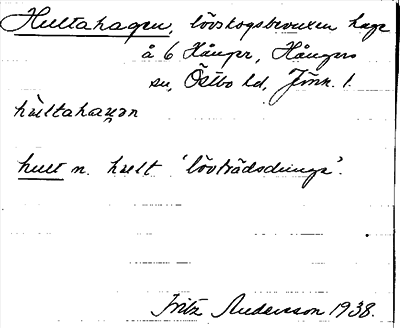 Hultahagen, lövskogsbevuxen hage
å 6 Hånger, Hångers
sn, Östbo hd, Jönk. l.
hùltahaɡən
hult n. hult 'lövträdsdunge'.
Fritz Andersson 1938.